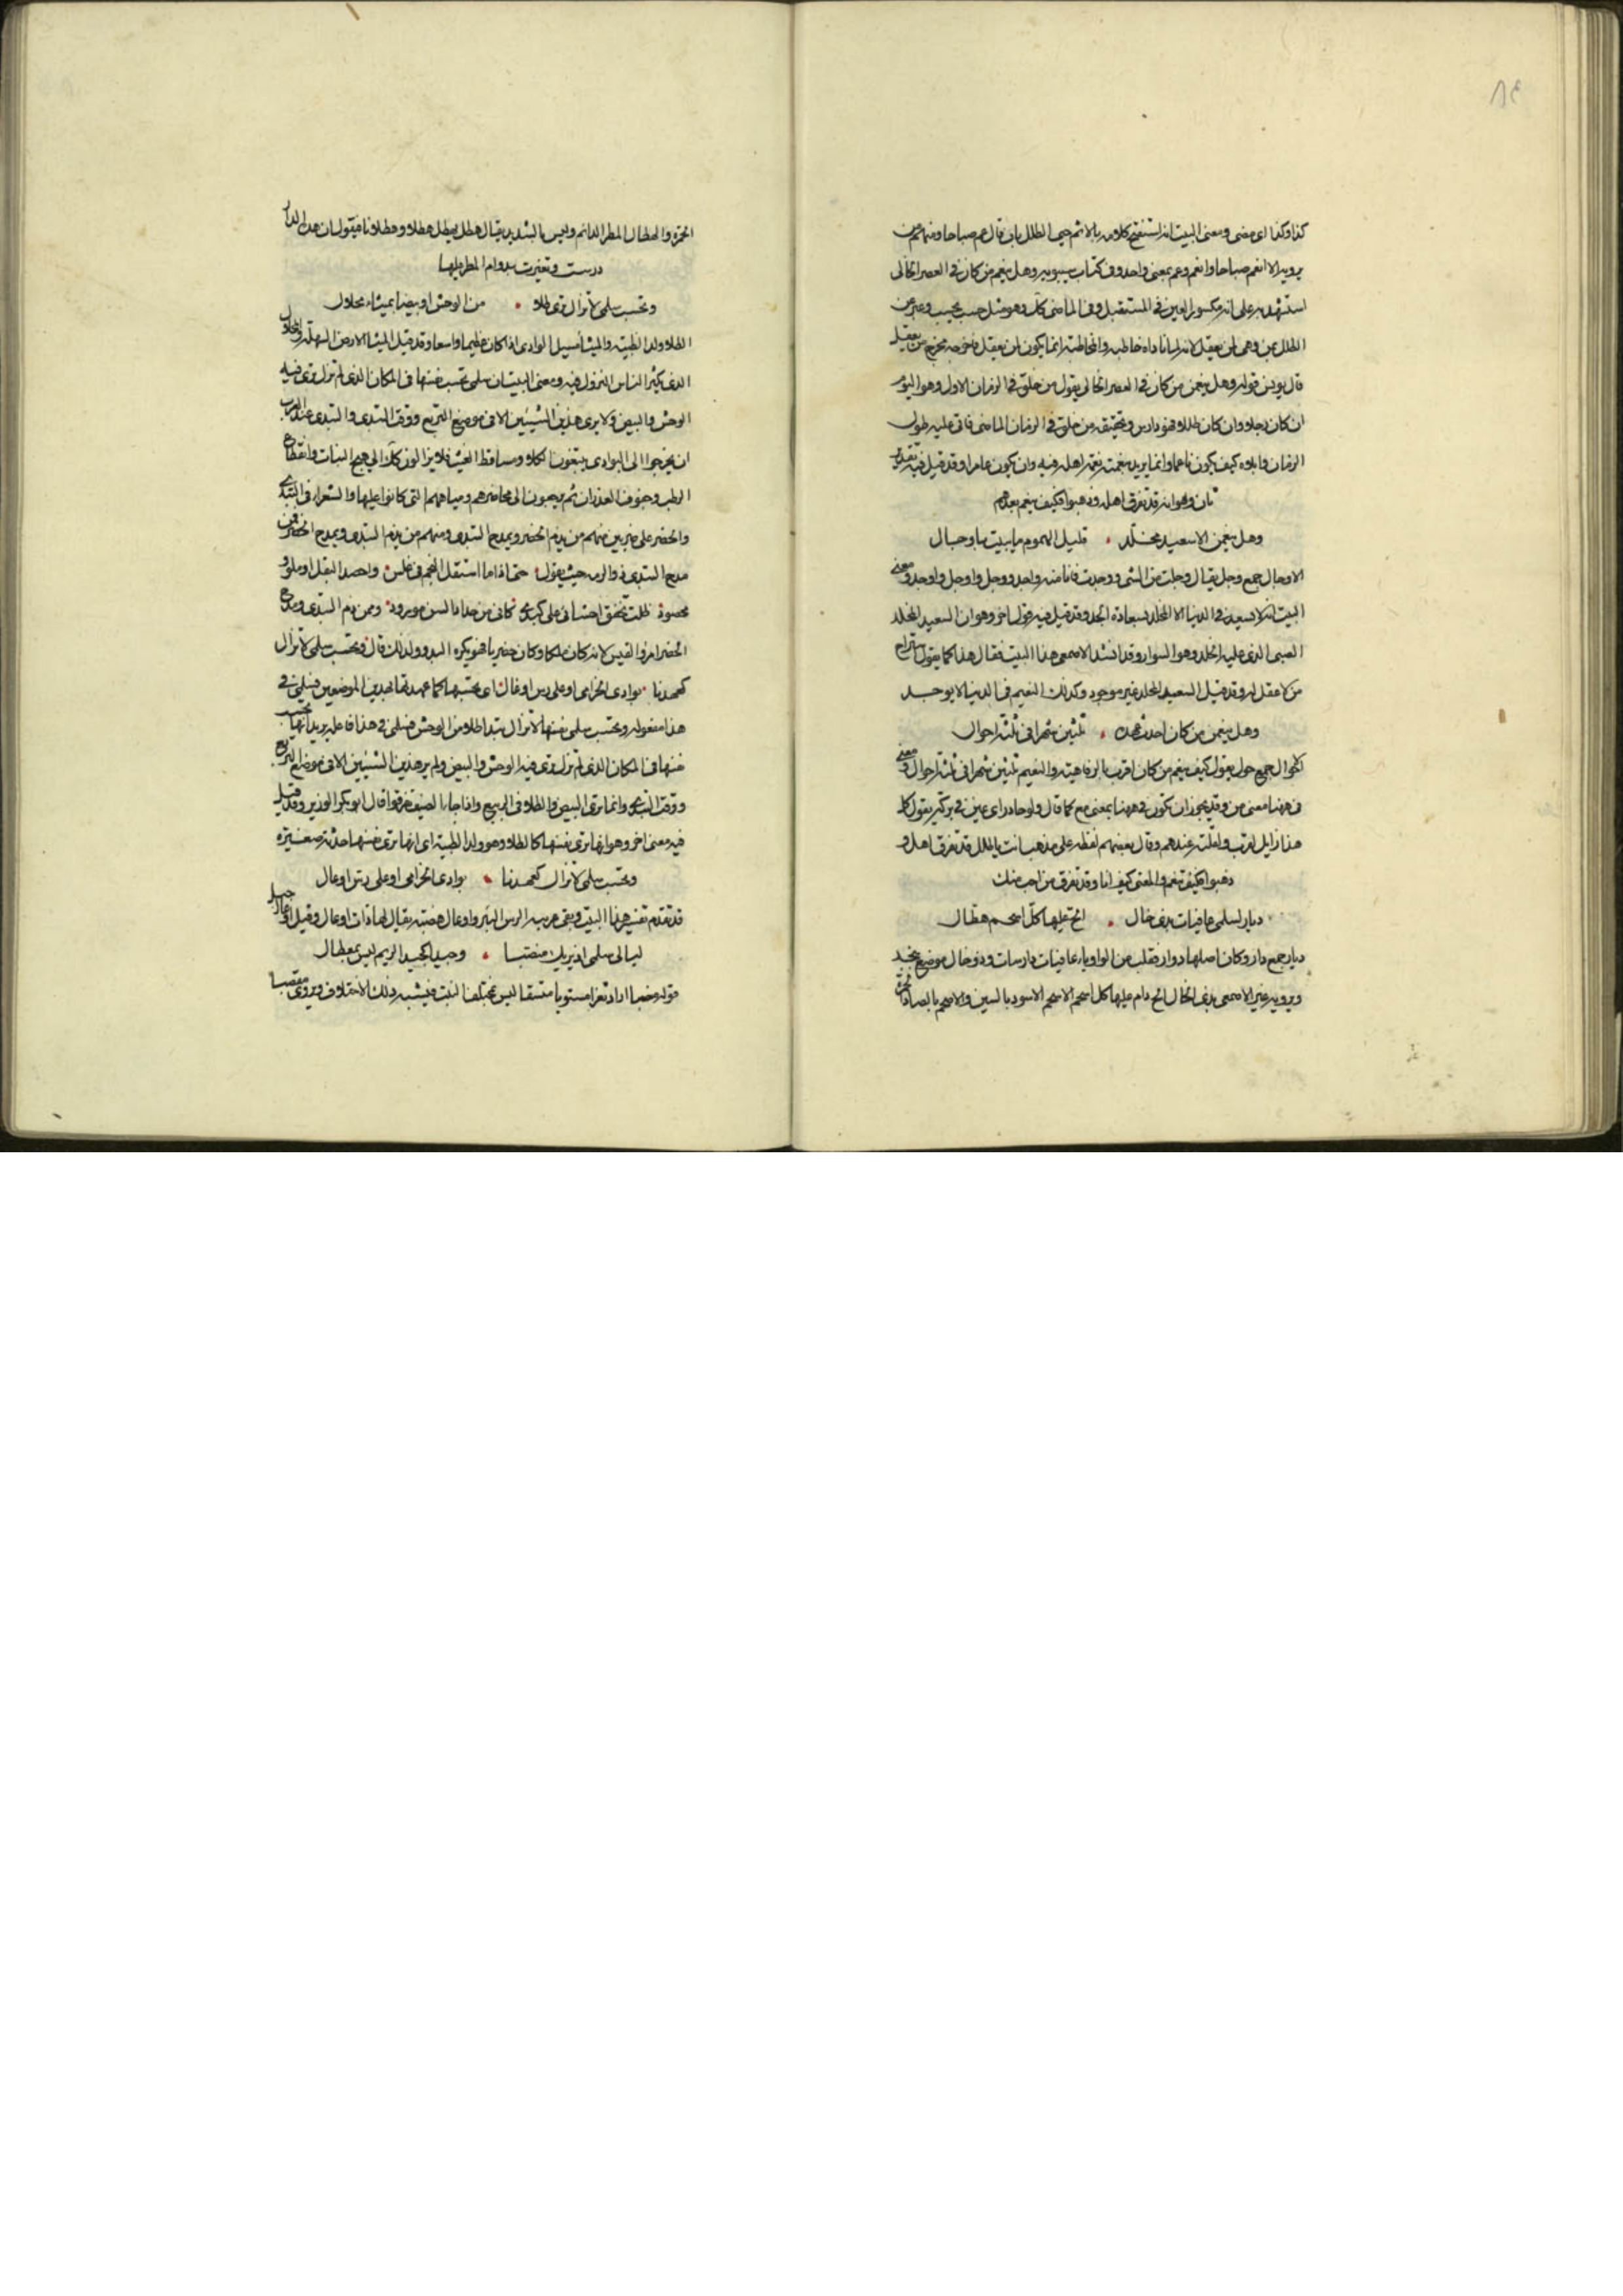 ٨٤
كذا وكذا اى مضى ومعنى البيت انه استفتح كلامه بالا ثم حيى الطلل بان قال عم صباحا ومنهم من
يرويه الا انعم صباحا وانعم وعم بمعنى واحد وفى كتاب سيبويه وهل ينعم من كان فى العصر الخالى
استشهد به على انه مكسور العين فى المستقبل وفى الماضى كذلك وهو مثل حسب يحسب وعبر عن
الطلل بمن وهى لمن يعقل لانه لما ناداه خاطبه والمخاطبة انما يكون لمن يعقل فاخرجه مخرج من يعقل
قال يونس قوله وهل ينعمن من كان فى العصر الخالى يقول من خلق فى الزمان الاول وهو اليوم
ان كان رجلا وان كان طللا فهو دارس وتحقيقه من خلق فى الزمان الماضى فاتى عليه طول
الزمان وابلاه كيف يكون ناعما وانما يريد بنعمته نعمة اهله فيه وان يكون عامرا وقد قيل فيه تقدير
ثان وهو انه قد تفرق اهله وذهبوا فكيف ينعم بعدهم
وهل ينعمن الا سعيد مخلّد • قليل الهموم ما يبيت باوجال
الاوجال جمع وجل يقال وجلت من الشى ووجدت فانا منه واجد ووجل واوجل واوجد ومعنى
البيت انه لا سعيد فى الدنيا الا المخلد بسعادة الجد وقد قيل فيه قول اخر وهو ان السعيد المخلد
الصبى الذى عليه الخلد وهو السوار وقد انشد الاصمعى هذا البيت فقال هذا كما يقول استراح
من لا عقل له وقد قيل السعيد المخلد غير موجود وكذلك النعيم فى الدنيا لا يوجد
وهل ينعمن من كان احدث عهده • ثلثين شهرا فى ثلثة احوال
الاحوال جمع حول يقول كيف ينعم من كان اقرب بالرفاهية والنعيم ثلثين شهرا فى ثلثة احوال ومعنى
فى ههنا معنى من وقد يجوز ان تكون فى ههنا بمعنى مع كما قال
دهبوا فكيف تنعم والمعنى كيف انا وقد تفرق من احب منك
ديار لسلمى عافيات بذى خال • الح عليها كل اسحم هطال
ديار جمع دار وكان اصلها دوار فقلب من الواو ياء عافيات دارسات وذو خال موضع بنجد
ويرويه غير الاصمعى بذى الخال الح دام عليها كل اسحم الاسحم الاسود بالسين والاصحم بالصاد
الحمرة والهطال المطر الدائم وليس بالشديد يقال هطل يهطل هطلا وهطلانا فيقول ان هذه الدار
درست وتغيرت بدوام المطر عليها
وتحسب سلمى لا تزال ترى طلا • من الوحش او بيضا بميثاء محلال
الطلا ولد الظبية والميثا مسيل الوادى اذا كان عظيما واسعا وقد قيل الميثا الارض السهلة والمحلال
الذى يكثر الناس النزول فيه ومعنى البيت ان سلمى تحسب نفسها فى المكان الذى لم تزل ترى فيه
الوحش والبيض ولا يرى هذين الشيئين الا فى موضع التربع ووقت التبدى والتبدى عند العرب
ان يخرجوا الى البوادى يبتغون الكلا ومساقط الغيث فلا يزالون كذلك الى هيج النبات وانقطاع
الرطب وجفوف الغدران ثم يرجعون الى محاضرهم ومياههم التى كانوا عليها والشعراء فى التبدى
والحضر على ضربين منهم من يذم الحضر ويمدح التبدى ومنهم من يذم التبدى ويمدح الحضر فمن
مدح التبدى ذو الرمه حيث يقول • حتى اذا ما استقل النجم فى غلس • واحصد البقل او ملوى
محصود • ظلت تخفق احشائى على كبدى • كانى من حذار البين مورود • وممن ذم التبدى ومدح
الحضر امرؤ القيس لانه كان ملكا وكان حضريا فهو يكره البدو ولذلك قال وتحسب سلمى لا تزال
كعهدنا • بوادى الخزامى او على رس اوعال • اى تحسبها كما عهدتها بهذين الموضعين فسلمى فى
هذا مفعوله وتحسب سلمى نفسها لا تزال طلا من الوحش فسلمى فى هذا فاعلة يريد انها تحسب
نفسها فى المكان الذى لم تزل ترى فيه الوحش والبيض ولم ير هذين الشيئين الا فى موضع التربع
ووقت التبدى وانما ترى البيض والطلا فى الربيع واذا جاء الصيف تفرقوا قال ابو بكر الوزير وقد قيل
فيه معنى اخر وهو انها ترى نفسها كالطلا وهو ولد الظبية اى انها ترى نفسها حدثة صغيرة
وتحسب سلمى لا تزال كعهدنا • بوادى الخزامى او على رس اوعال
قد تقدم تفسير هذا البيت وبقى غريبه الرس البئر واوعال هضبة يقال لها ذات اوعال وقيل اوعال جبل
ليالى سلمى اذ تريك منصبا • وجيدا كجيد الريم ليس بمعطال
قوله منصبا اراد ثغرا مستويا متسقا ليس بمختلف النبت فيشبه ذلك الاختلاف ويروى مقصبا